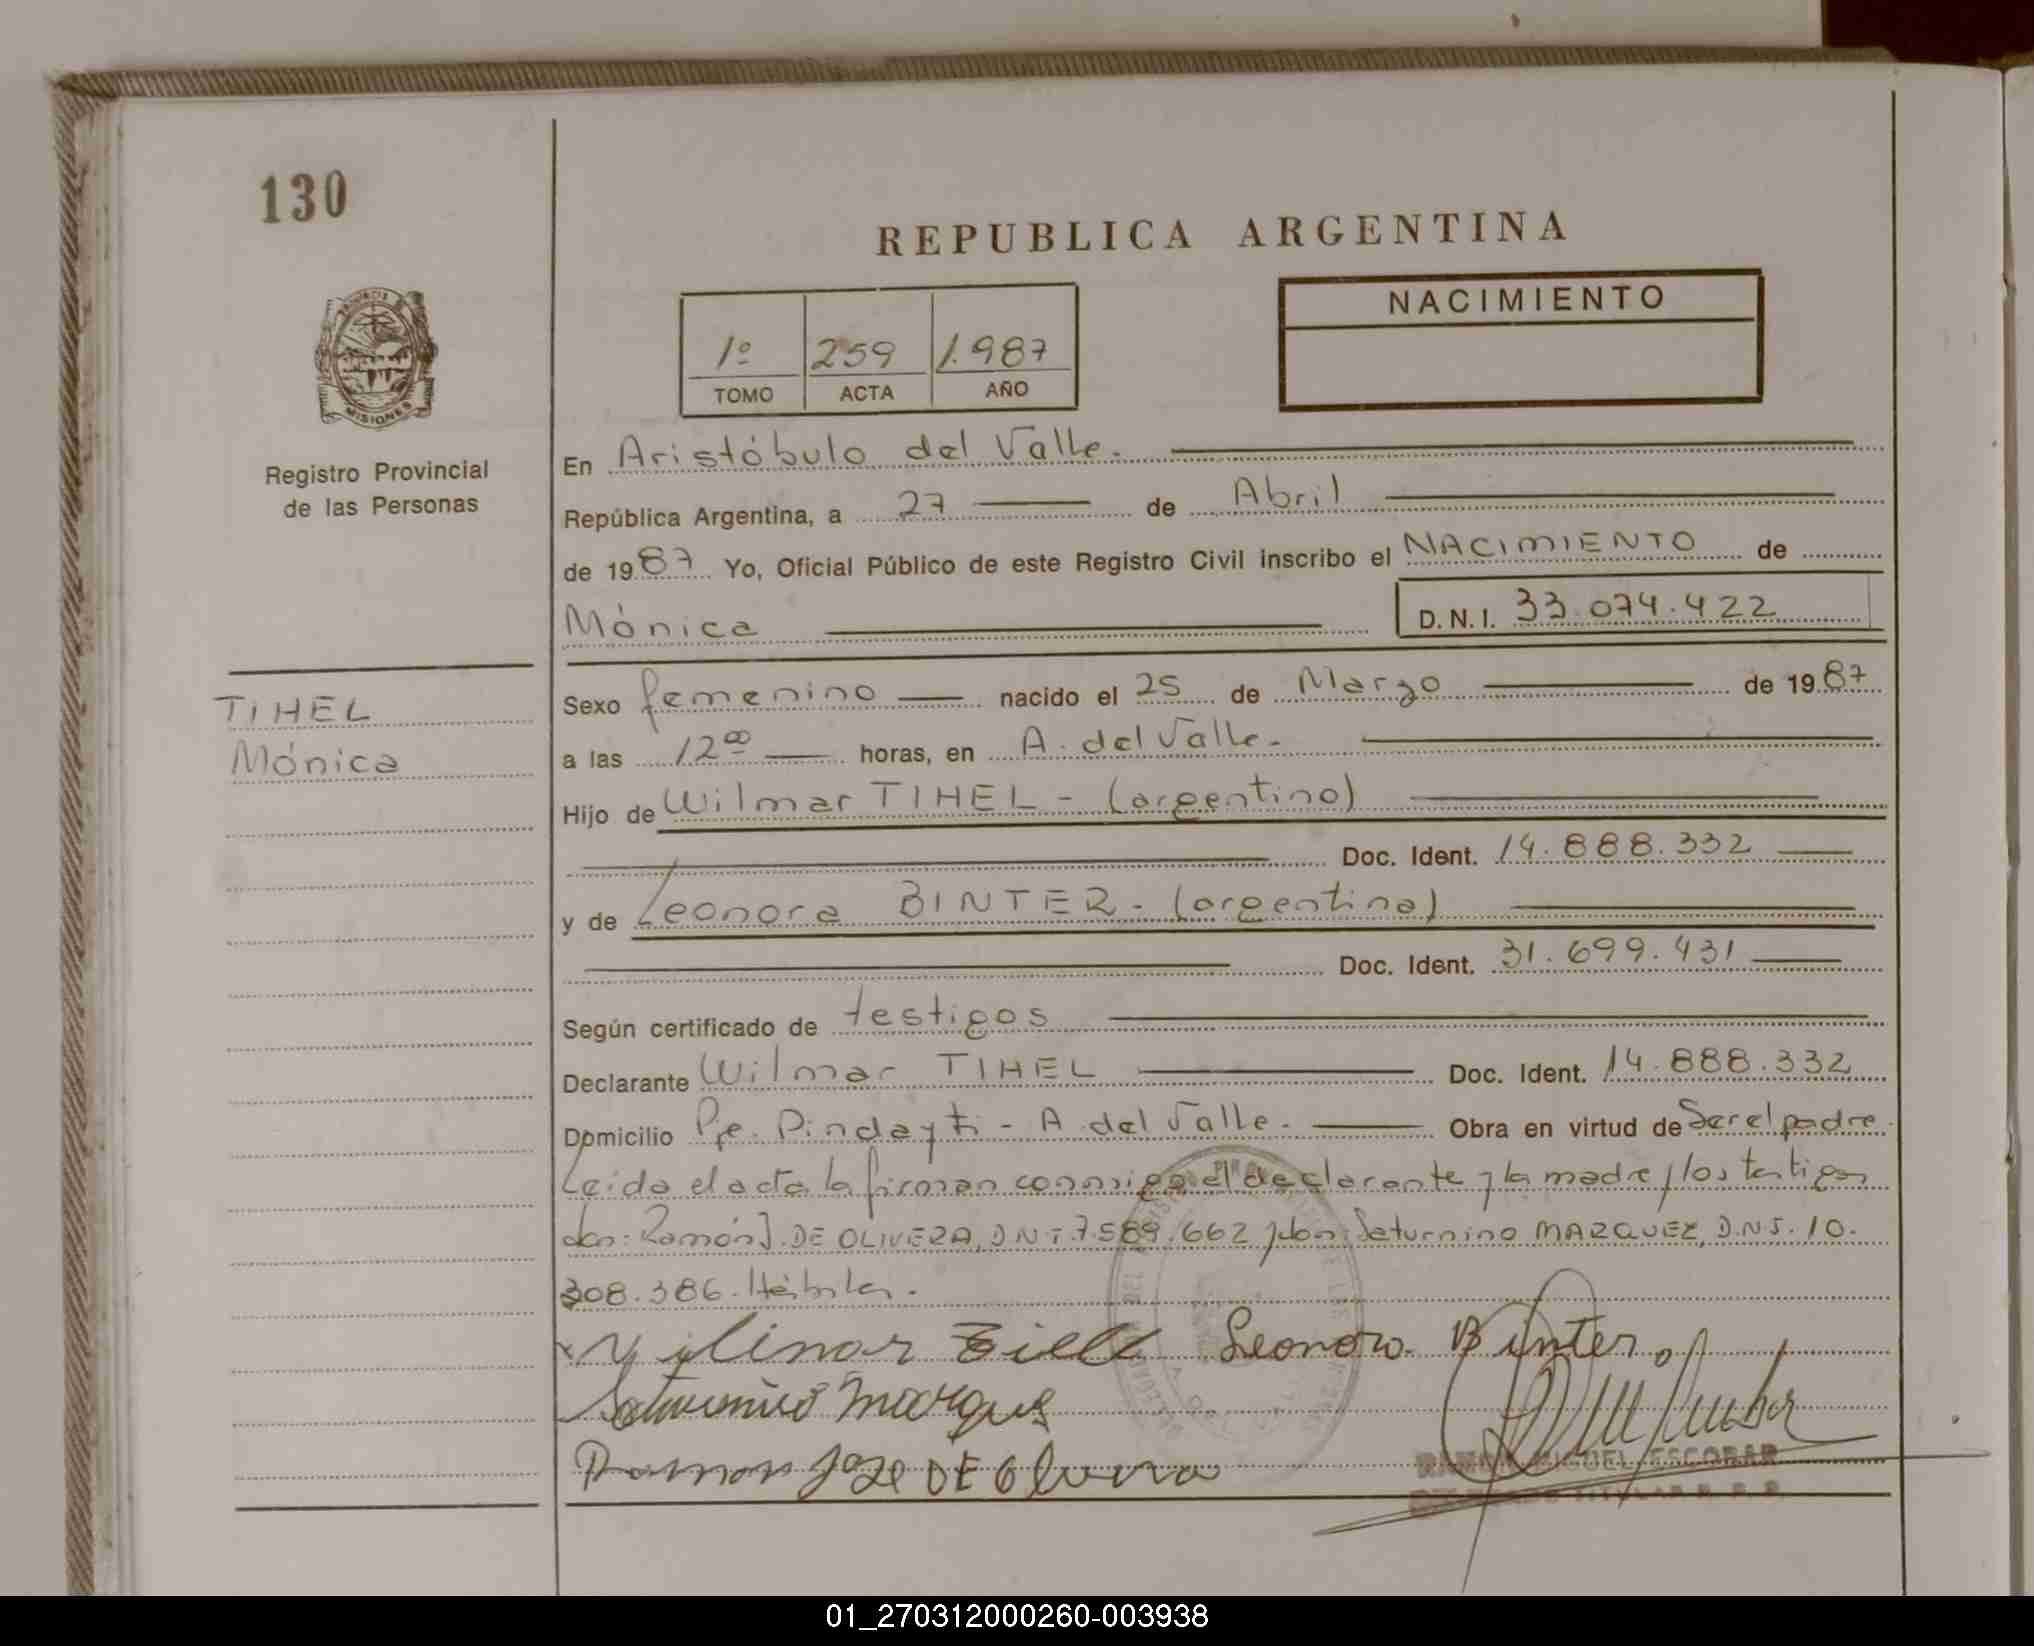 130
REPUBLICA ARGENTINA
PROVINCIA
MISIONES
Registro Provincial
de las Personas
1º 259 1.987
TOMO ACTA AÑO
NACIMIENTO
En Aristóbulo del Valle.
República Argentina, a 27 de Abril
de 1987 Yo, Oficial Público de este Registro Civil inscribo el NACIMIENTO de
Mónica D.N.I. 33.074.422
TIHEL
Mónica
Sexo femenino nacido el 25 de Marzo de 1987
a las 12 00 horas, en A. del Valle.
Hijo de Wilmar TIHEL - (argentino)
Doc. Ident. 14.888.332
y de Leonora BINTER - (argentina)
Doc. Ident. 31.699.431
Según certificado de testigos
Declarante Wilmar TIHEL Doc. Ident. 14.888.332
Domicilio Pje. Pindayti - A. del Valle. Obra en virtud de Ser el padre.
Leida el acta la firman conmigo el declarante y la madre y los testigos
don: Ramón J. DE OLIVERA, D.N.I. 7.589.662 y don Saturnino MARQUEZ, D.N.I. 10.
308.386. Hábiles.
Leonora Binter
Saturnino Marques
Ramon Jose DE Olivera
RAMON MIGUEL ESCOBAR
01_270312000260-003938